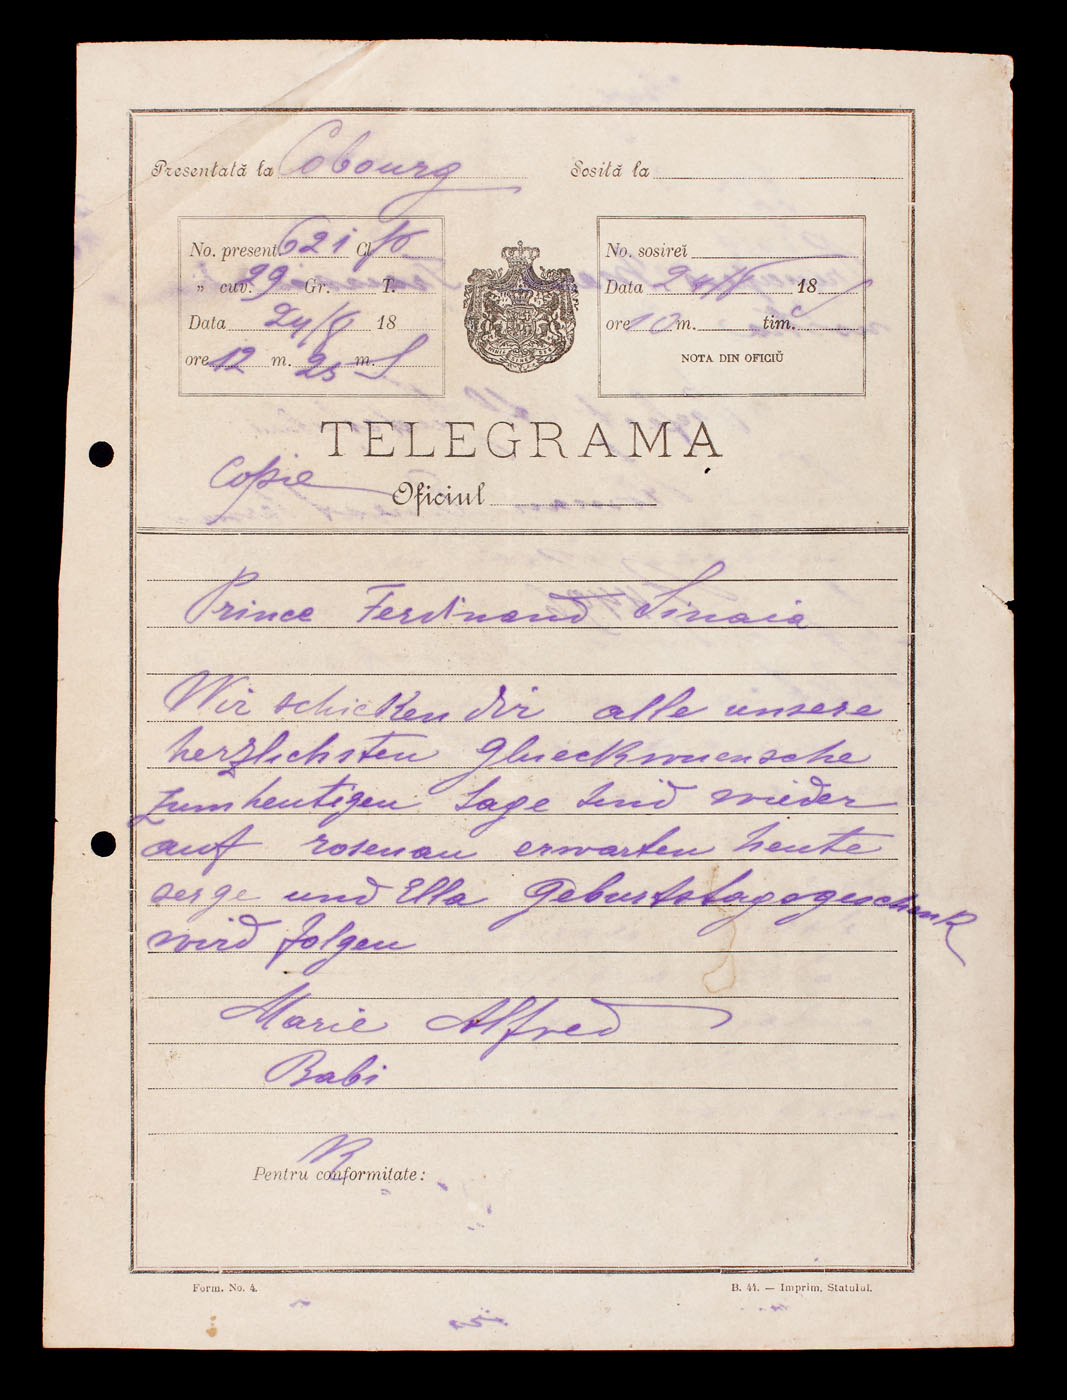 Presentată la Cobourg
Sosită la
No. present. 621 Cl.
„ cuv. 99 Gr. T.
Data 24/8 18
ore 12 m. 25 m. S
No. sosirei
Data 24/8 18
ore 10 m. tim.
NOTA DIN OFICIŬ
TELEGRAMA
Copie
Oficiul
Prince Ferdinand Sinaia
Wir schicken dir alle unsere
herzlichsten glueckwuensche
zum heutigen tage sind wieder
auf rosenau erwarten heute
serge und Ella Geburtstagsgeschenk
wird folgen
Marie Alfred
Babi
Pentru conformitate:
Form. No. 4.
B. 44. — Imprim. Statului.